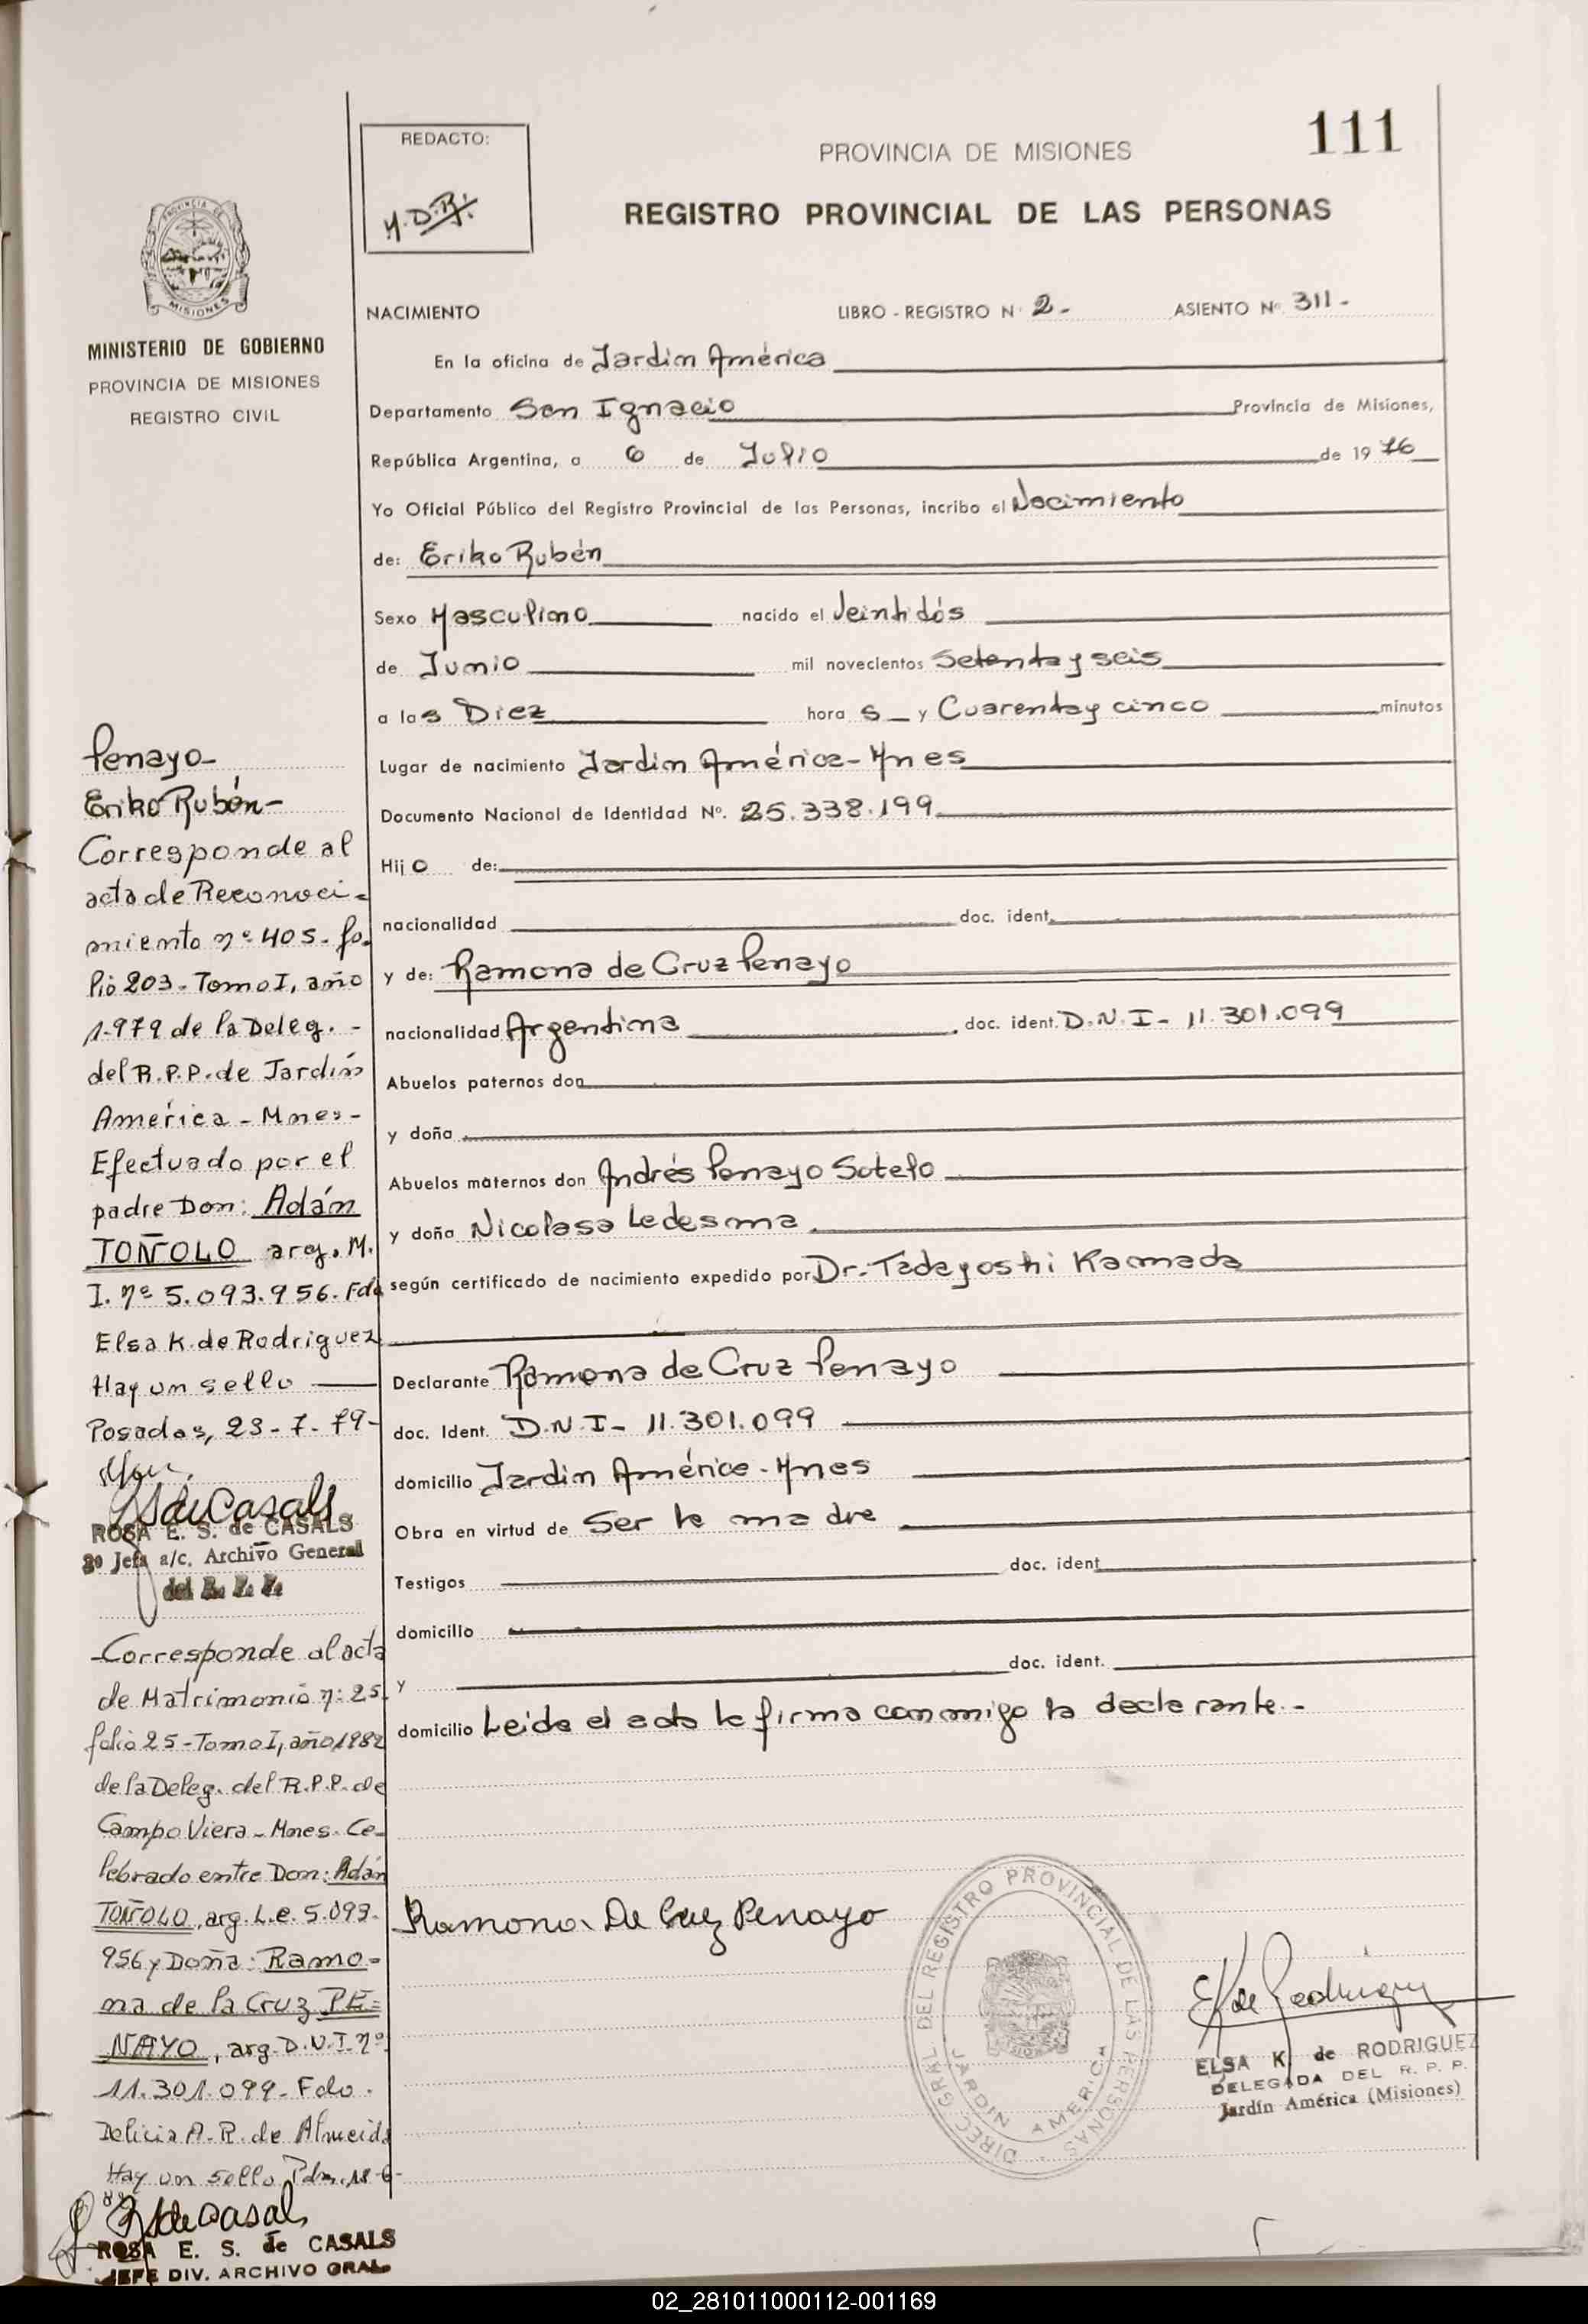 111
REDACTO:
M.D.R.
PROVINCIA DE MISIONES
REGISTRO PROVINCIAL DE LAS PERSONAS
PROVINCIA DE
MISIONES
MINISTERIO DE GOBIERNO
PROVINCIA DE MISIONES
REGISTRO CIVIL
NACIMIENTO LIBRO - REGISTRO N° 2- ASIENTO N° 311-
En la oficina de Jardín América
Departamento San Ignacio Provincia de Misiones,
República Argentina, a 6 de Julio de 1976
Yo Oficial Público del Registro Provincial de las Personas, incribo el Nacimiento
de: Eriko Rubén
Sexo Masculino nacido el Veintidós
de Junio mil novecientos Setenta y seis
a las Diez hora s y Cuarenta y cinco minutos
Lugar de nacimiento Jardín América - Mnes
Documento Nacional de Identidad N°. 25.338.199
Hijo de:
nacionalidad doc. ident.
y de: Ramona de Cruz Penayo
nacionalidad Argentina doc. ident. D.N.I- 11.301.099
Abuelos paternos don
y doña
Abuelos maternos don Andrés Penayo Sotelo
y doña Nicolasa Ledesma
según certificado de nacimiento expedido por Dr. Tadayoshi Kamada
Declarante Ramona de Cruz Penayo
doc. Ident. D.N.I- 11.301.099
domicilio Jardín América - Mnes
Obra en virtud de Ser la madre
Testigos doc. ident.
domicilio
y doc. ident.
domicilio Leida el acta la firma conmigo la declarante.-
Ramona De Cruz Penayo
DIREC. GRAL. DEL REGISTRO PROVINCIAL DE LAS PERSONAS
JARDIN AMERICA
E K de Rodriguez
ELSA K. de RODRIGUEZ
DELEGADA DEL R. P. P.
Jardín América (Misiones)
Penayo-
Eriko Rubén-
Corresponde al
acta de Reconoci=
miento nº 405- fo-
lio 203- Tomo I, año
1.979 de la Deleg. -
del R.P.P. de Jardín
América - Mnes-
Efectuado por el
padre Don: Adán
TOÑOLO arg. M.
I. nº 5.093.956. Fdo
Elsa K. de Rodriguez
Hay un sello
Posadas, 23-7-79-
RSdeCasals
ROSA E. S. de CASALS
2º Jefa a/c. Archivo General
del R. P. P.
Corresponde al acta
de Matrimonio n: 25
folio 25- Tomo I, año 1982
de la Deleg. del R.P.P. de
Campo Viera - Mnes. Ce-
lebrado entre Don: Adán
TOÑOLO, arg. L.e. 5.093.
956 y Doña: Ramo=
na de la Cruz PE=
NAYO, arg. D.N.I. nº
11.301.099- Fdo.
Delicia A. R. de Almeida
Hay un sello Pdas, 18-6-
RSdeCasals
ROSA E. S. de CASALS
JEFE DIV. ARCHIVO GRAL.
02_281011000112-001169